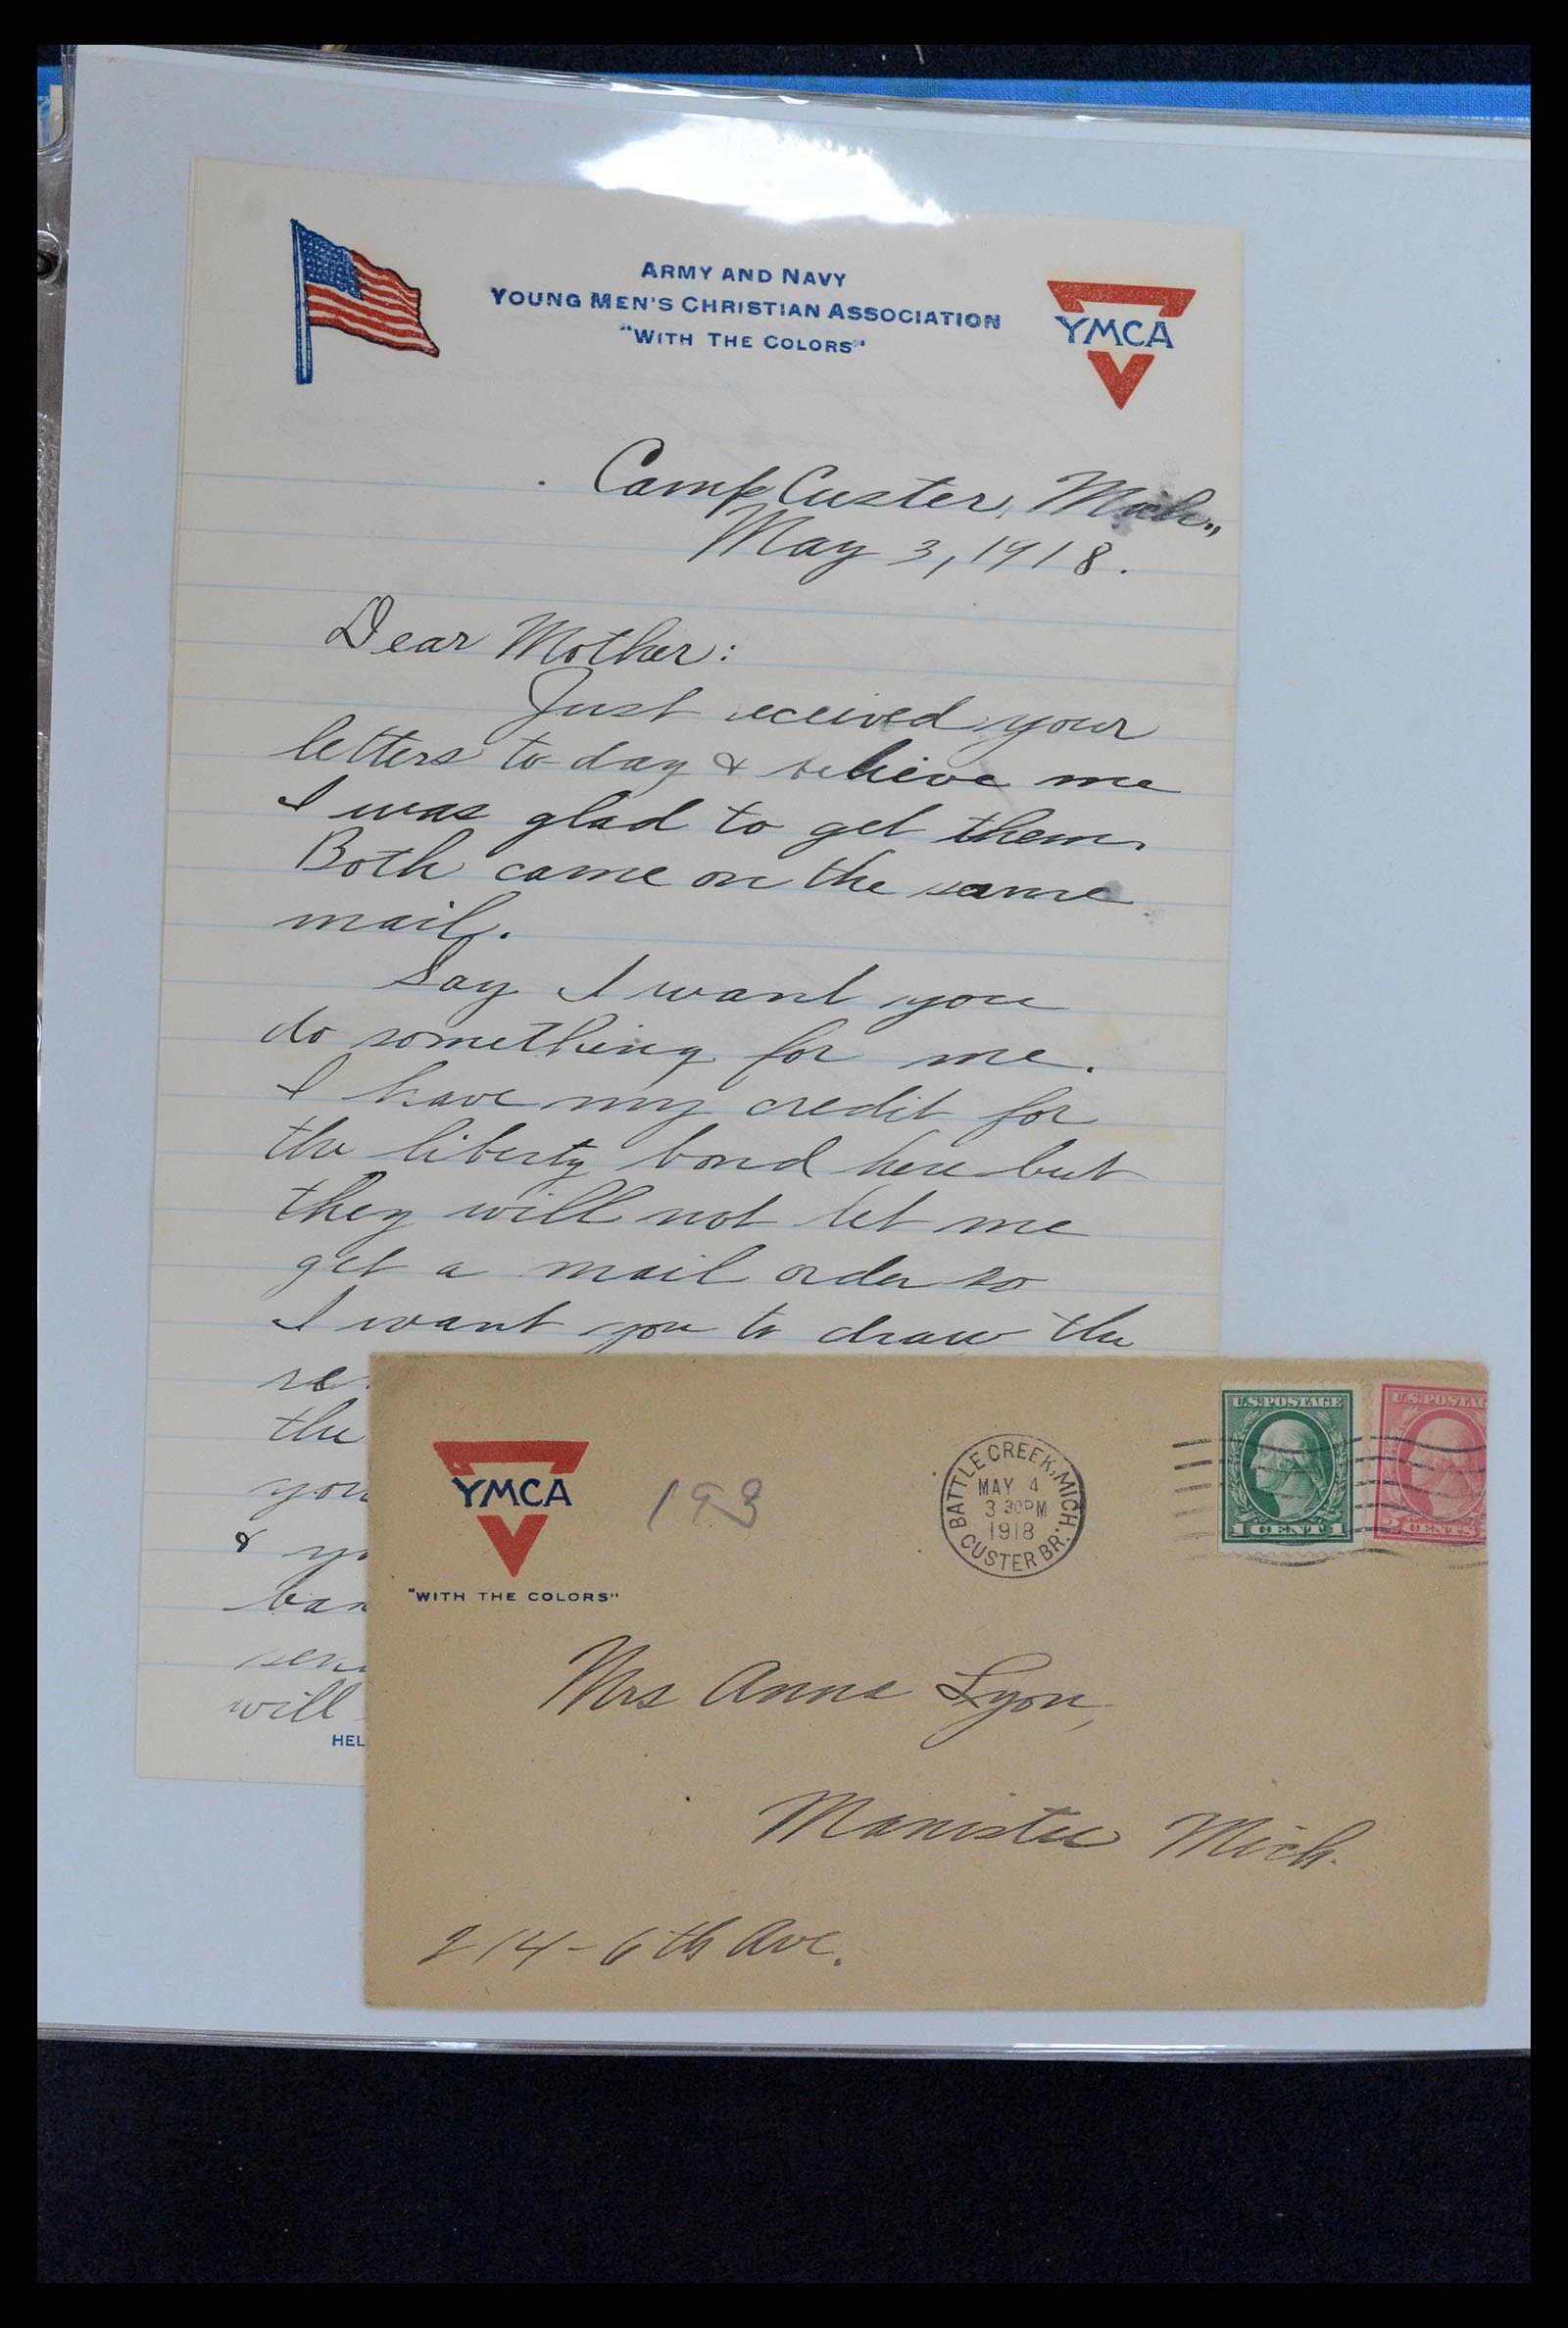 ARMY AND NAVY
YOUNG MEN'S CHRISTIAN ASSOCIATION
"WITH THE COLORS"
YMCA
Camp Custer, Mich.,
May 3, 1918.
Dear Mother:
Just received your
letters to day & believe me
I was glad to get them.
Both came on the same
mail.
Say I want you
do something for me.
I have my credit for
the liberty bond here but
they will not let me
get a mail order so
I want you to draw the
re
the
you
& yo
ban
sen
will
HEL
YMCA
"WITH THE COLORS"
193
BATTLE CREEK, MICH.
MAY 4
3 30PM
1918
CUSTER BR.
U.S. POSTAGE
1 CENT 1
U.S. POSTAG
2 CENTS
Mrs Anna Lyon,
Manistee Mich.
214-6th Ave.